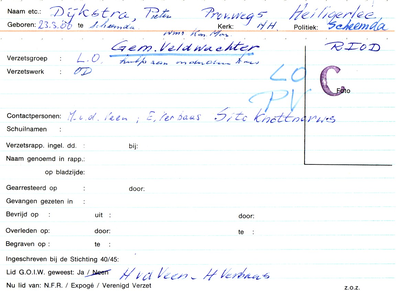 Naam etc.: Dijkstra, Pieter Provweg 5 Heiligerlee
Geboren: 23.3.06 te Scheemda Kerk: NH. Politiek: Scheemda
Gem. Veldwachter RIOD
Verzetsgroep : L.O.
Verzetswerk : OD
LO
PV
C
Foto
Contactpersonen: H.v.d. Veen;
Schuilnaam :
Verzetsrapp. ingel. dd. : bij:
Naam genoemd in rapp.:
op bladzijde:
Gearresteerd op : door:
Gevangen gezeten in :
Bevrijd op : uit : door:
Overleden op: te : door:
Begraven op : te :
Ingeschreven bij de Stichting 40/45:
Lid G.O.I.W. geweest: Ja / Neen H vd Veen - H Verbaas
Nu lid van: N.F.R. / Expogé / Verenigd Verzet z.o.z.